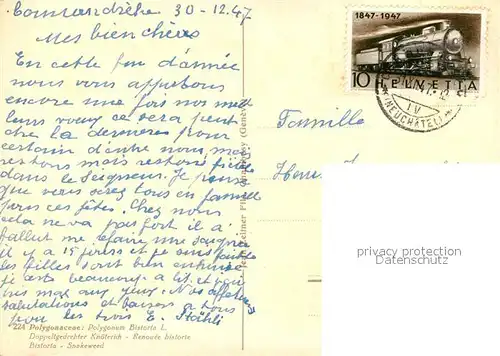 Comandrèche 30-12.47
Mes bien chères
En cette fin d'année
nous vous apportons
encore une fois nos meil
leurs voeux ce sera peut
être la dernière pour
certain d'entre nous, mais
restons mais restons fidèle
dans le Seigneur. Je pense
que vous serez tous en famille
pour ces fêtes. Chez nous
cela ne va pas fort il a
fallut me faire une saignée
il y a 15 jours et je suis faible
les filles sont bien enrhumé
je reste beaucoup a lit, et
très mal aux yeux. Nos affectueuses
salutations et baisers a tous
pour les trois E. Stähli
224 Polygonaceae: Polygonum Bistorta L.
Doppeltgedrehter Knöterich - Renouée bistorte
Bistorta - Snakeweed
(Genève)
1847-1947
10 HELVETIA
IV
(NEUCHÂTEL)
Famille
Henri
privacy protection
Datenschutz